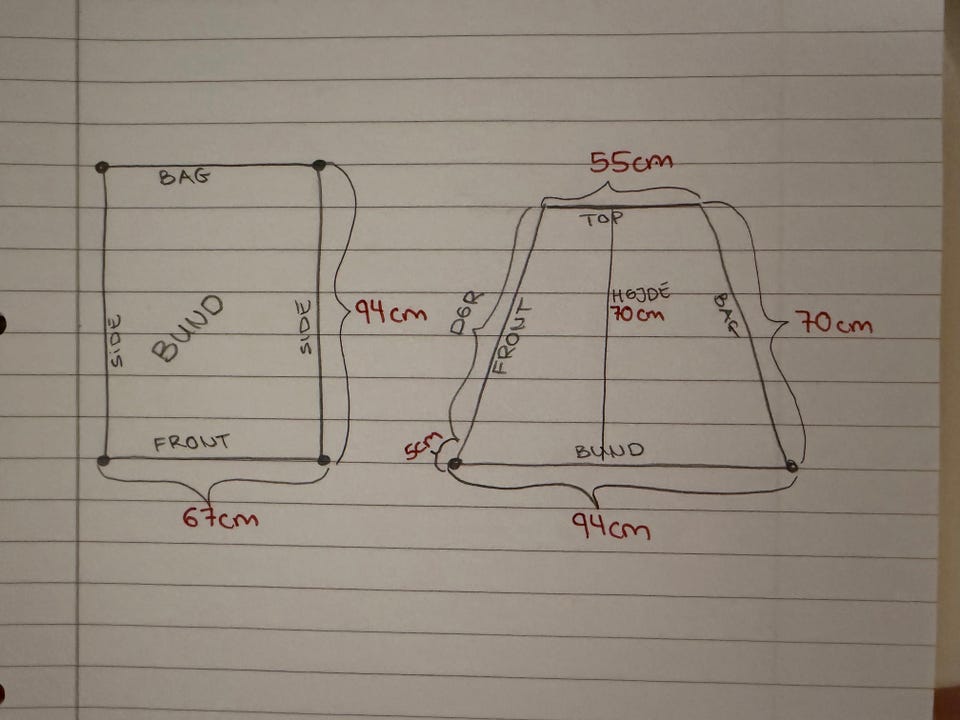 BAG
SIDE
BUND
SIDE
94cm
FRONT
67cm
55cm
TOP
DØR
FRONT
HØJDE
70cm
BAG
70cm
5cm
BUND
94cm